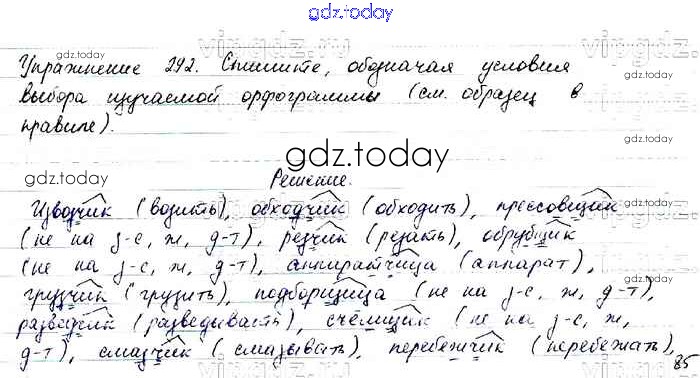 gdz.today
Упражнение 242. Спишите, обозначая условия
выбора изучаемой орфограммы (см. образец в
правиле).
gdz.today
Решение.
Извозчик (возить), обходчик (обходить), прессовщик
(не на з-с, ж, д-т), резчик (резать), обрубщик
(не на з-с, ж, д-т), аппаратчица (аппарат),
грузчик (грузить), подборщица (не на з-с, ж, д-т),
разведчик (разведывать), счёмщик (не на з-с, ж,
д-т), смазчик (смазывать), перебежчик (перебежать),
85